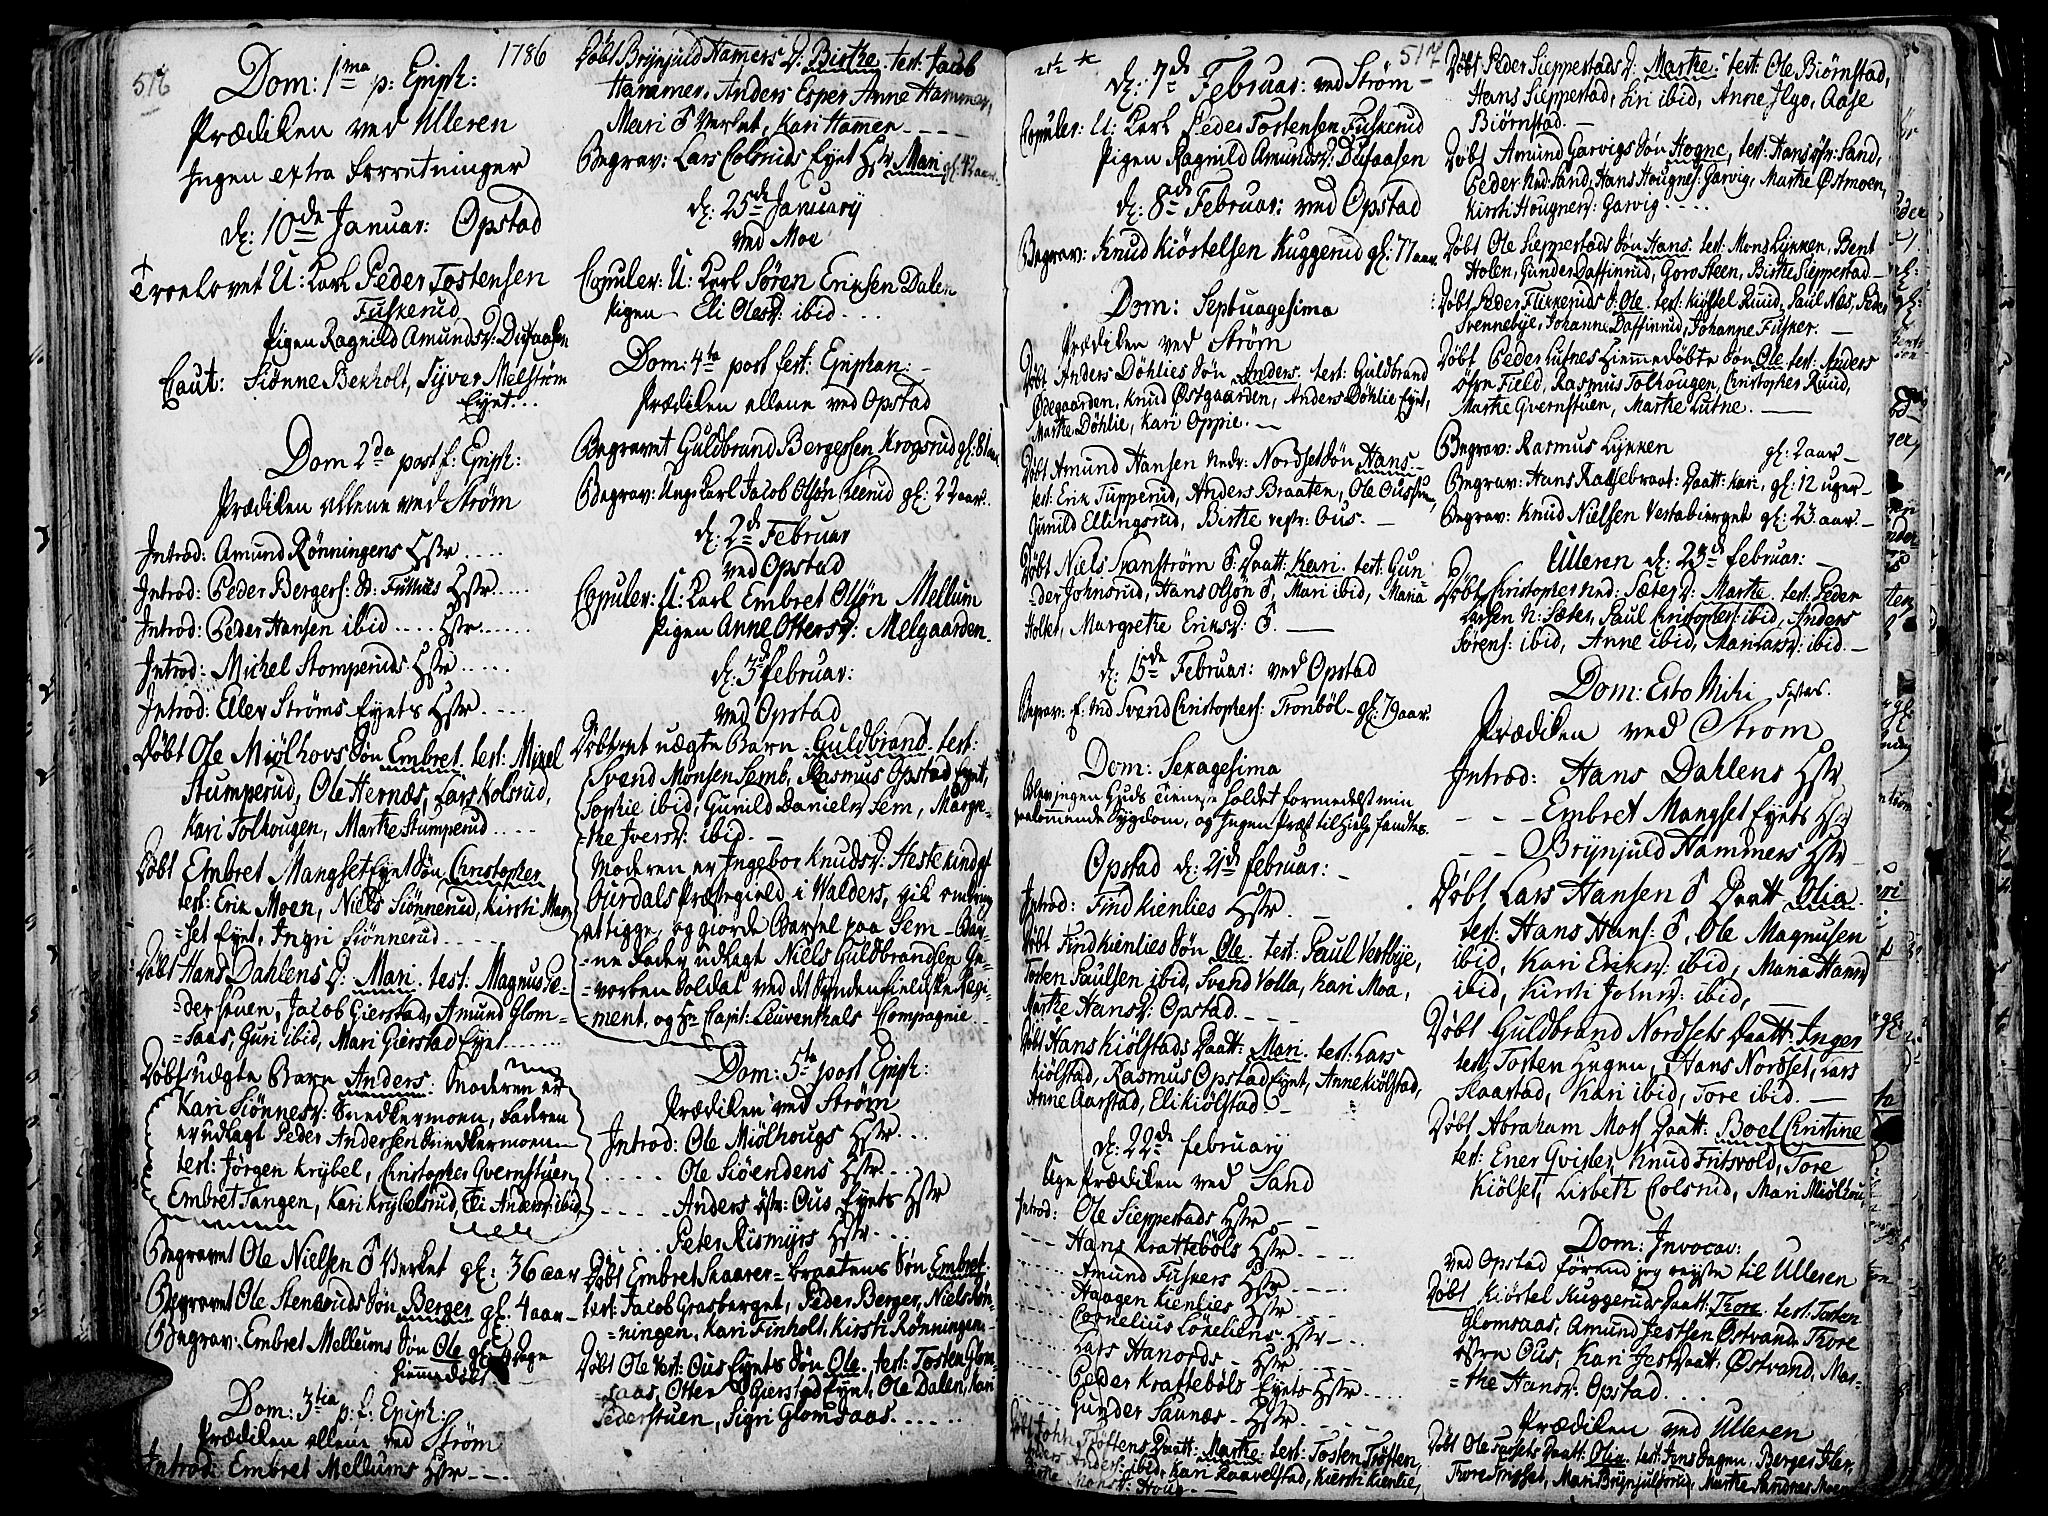 516
1786
Dom: 1ma p: Epiph:
Prædiken ved Ulleren
Ingen extra Forretninger
d: 10de Januar: Opstad
Troelovet U: Karl Peder Tostensen
Fuskerud
Pigen Ragnild Amundsd: Dusaasen
Caut: Siønne Bekholt, Syver Melstrøm
Eyet...
Dom 2da post f: Epiph:
Prædiken allene ved Strøm
Introd: Amund Rønningens Hstr....
Introd: Peder Bergers: Hstr....
Introd: Peder Hansen ibid.... Hstr.....
Introd: Michel Stomperuds Hstr.....
Introd: Ellev Strøms Eyets Hstr....
Døbt Ole Miølhovs Søn Embret test: Mikel
Stumperud, Ole Hernæs, Lars Kolsrud,
Kari Tolhougen, Marthe Stumperud....
Døbt Embret Mangset Eyet Søn Christopher
test: Erik Moen, Niels Siønnerud, Kirsti Mang
=set Eyet, Ingri Siønnerud....
Døbt Hans Dahlens D: Mari. test: Magnus Pe=
=derstuen, Jacob Gierstad, Amund Glom=
=saas, Guri ibid, Mari Gierstad Eyet.....
Døbt uægte Barn Anders: Moderen er
Kari Siønnesd: Snedkermoen, Faderen
er udlagt Peder Andersen Snedkermoen
test: Jørgen Krybel, Christopher Qvernstuen,
Embret Tangen, Kari Krybelsrud, Eli Andersd: ibid.
Begravet Ole Nielsen Verket gl: 36 aar
Begravet Ole Stensruds Søn Berger gl: 4 aar
Begrav: Embret Mellums Søn Ole gl: 4 Dage
hiemmedøbt
Dom: 3tia p: f: Epiph:
Prædiken allene ved Strøm
Introd: Embret Mellums Hstr
Døbt Brynjuld Hamers D: Birthe. test: Jacob
Hammer, Anders Esper Anne Hammer,
Mari Verket, Kari Hamer
Begrav: Lars Colsruds Eyet Hstr Mari gl: 42 aar
d: 25de January
ved Moe
Copulev: U: Karl Søren Eriksen Dalen
Pigen Eli Olesd: ibid...
Dom: 4ta post fest: Epiphan:
Prædiken allene ved Opstad
Begravet Guldbrand Bergessen Krogsrud gl: 81 aar
Begrav: Unge Karl Jacob Olsøn Leerud gl: 22 aar
d: 2de Februar
ved Opstad
Copulev: U: Karl Embret Olsøn Mellum
Pigen Anne Ottersd: Melgaarden.
d: 3de februar:
ved Opstad
Døbt et uægte Barn Guldbrand. test:
Svend Monsen Semb, Rasmus Opstad Eyet,
Sophie ibid, Gunild Danielsd Sem, Margre-
the Iversd: ibid.
Moderen er Ingebor Knudsd: Hestekind af
Ourdals Præstegield i Walders, gik omkring
at tigge, og giorde Barsel paa Sem - Bar-
=ne Fader udlagt Niels Guldbrandsen Ge-
=vorben Soldat ved det Søndenfieldske Regi-
=ment, og Hr Capit: Leuventhals Compagnie
Dom: 5ta post Epiph:
Prædiken ved Strøm
Introd: Ole Miølhougs Hstr...
..... Ole Siøendens Hstr...
..... Anders østr: Ous Eyets Hstr
..... Peter Rismyrs Hstr...
Døbt Embret Skaarer=braatens Søn Embret.
test: Jacob Grasberget, Peder Berger, Niels Røn-
=ningen, Kari Finholt, Kirsti Rønningen
Døbt Ole Vest: Ous Eyets Søn Ole. test: Tosten Glom=
=saas, Otter Gierstad Eyet, Ole Dalen, Kari
Pederstuen, Sigri Glomsaas......
517
d: 7de Februar: ved Strøm
Copulev: U: Karl Peder Tostensen Fuskerud
Pigen Ragnild Amundsd: Dusaasen
d: 8de Februar: ved Opstad
Begrav: Knud Kiøstelsen Kuggerud gl: 77 aar.
Dom: Septuagesima
Prædiken ved Strøm
Døbt Anders Døhlies Søn Anders. test: Guldbrand
Ødegaarden, Knud Østgaarden, Anders Døhlie Eyet,
Marthe Døhlie, Kari Oppie.
Døbt Amund Hansen Nedr: Nordset Søn Hans
test: Erik Tupperud, Anders Braaten, Ole Oussen,
Gunild Ellingsrud, Birthe vestr: Ous.
Døbt Niels Svanstrøm Daatt: Kari. test: Gun-
=der Johnsrud, Hans Olsøn, Mari ibid, Maria
Holter, Margrethe Eriksd:
d: 15de Februar: ved Opstad
Begrav: Svend Christophers: Tronbøl gl: 79 aar.
Dom: Sexagesima
Blev ingen Guds Tieneste holdet formedelst min
paakomende Sygdom, og Ingen Præst til hielp fandtes.
Opstad d: 21de februar:
Introd: Find Kienlies Hstr.
Døbt Find Kienlies Søn Ole. test: Paul Vestbye,
Tosten Paulsen ibid, Svend Volla, Kari Moa,
Marthe Hansd: Opstad....
Døbt Hans Kiølstads Daatt: Mari. test: Lars
Kiølstad, Rasmus Opstad Eyet, Anne Kiølstad,
Anne Aarstad, Eli Kiølstad
d: 22de february
Uge Prædiken ved Sand
Introd: Ole Sieppestads Hstr
.... Hans Krattebøls Hstr....
.... Amund Fuskers Hstr....
.... Haagen Kienlies Hstr...
.... Cornelius Løkeliens Hstr
.... Lars Hanords Hstr....
.... Peder Krattebøls Eyets Hstr....
.... Gunder Saunæs Hstr....
Døbt John Trøftens Daatt: Marthe. test: Tosten Trøften,
Anders: ibid, Kari Raavelstad, Kiersti Kienlie,
Monsd: Houg.
Døbt Peder Sieppestads D: Marthe. test: Ole Biørnstad,
Hans Sieppestad, Siri ibid, Anne Ilgo, Aase
Biørnstad.
Døbt Amund Garvigs Søn Hogne, test: Hans øfr: Sand,
Peder Ned: Sand, Hans Hougnes: Garvig, Marthe Østmoen,
Kirsti Hougnesd: Garvig....
Døbt Ole Sieppestads Søn Hans. test: Mons Lykken, Bent
Holen, Gunder Daffinrud, Goro Steen, Birthe Sieppestad
Døbt Peder Flikkeruds S: Ole. test: Kiøstel Ruud, Paul Næs, Peder
Svennebye, Johanne Daffinrud, Johanne Fusker.
Døbt Peder Lutnes hiemmedøbte Søn Ole test: Anders
øfre Field, Rasmus Tolhougen, Christopher Ruud,
Marthe Qvernstuen, Marthe Lutne.
Begrav: Rasmus Lykken gl: 2 aar
Begrav: Hans Katsebraat: Daatt: Kari, gl: 12 uger
Begrav: Knud Nielsen Vestabierget gl: 23 aar
Ulleren d: 23de februar:
Døbt Christopher ned: Sæter D: Marthe. test: Peder
Larsen N: Sæter, Paul Christophers: ibid, Anders
Sørens: ibid, Anne ibid, Mari Larsd: ibid.
Dom: Esto Mihi, Fastel.
Prædiken ved Strøm
Introd: Hans Dahlens Hstr
- - - Embret Mangset Eyets Hstr
- - - Brynjuld Hammers Hstr
Døbt Lars Hansen Daatt Olia
test: Hans Hans:, Ole Magnusen
ibid, Kari Eriksd: ibid, Maria Hansd
ibid, Kirsti Johnsd: ibid,
Døbt Guldbrand Nordsets Daatt: Inger
test: Tosten Hagen, Hans Nordset, Lars
Skaastad, Kari ibid, Tore ibid.
Døbt Abraham Mors Daatt: Boel Christine
test: Ener Qvisler, Knud Fritsvold, Tore
Kiølset, Lisbeth Colsrud, Mari Miølhou,
Dom: Invocav:
Ved Opstad førend jeg reyste til Ulleren
Døbt Kiøstel Kuggeruds Daatt: Thore. test: Tosten
Glomsaas, Amund Jestsen Østvand, Thore
østre Ous, Kari Jestdaatt, Østvand, Mar-
=the Hansd: Opstad....
Prædiken ved Ulleren
Døbt Ole Fussets Daatt: Olia. test: Jens Dagen, Berger Iler,
Thore Frysset, Mari Brynjulfsrud, Marthe Sandnes Moen